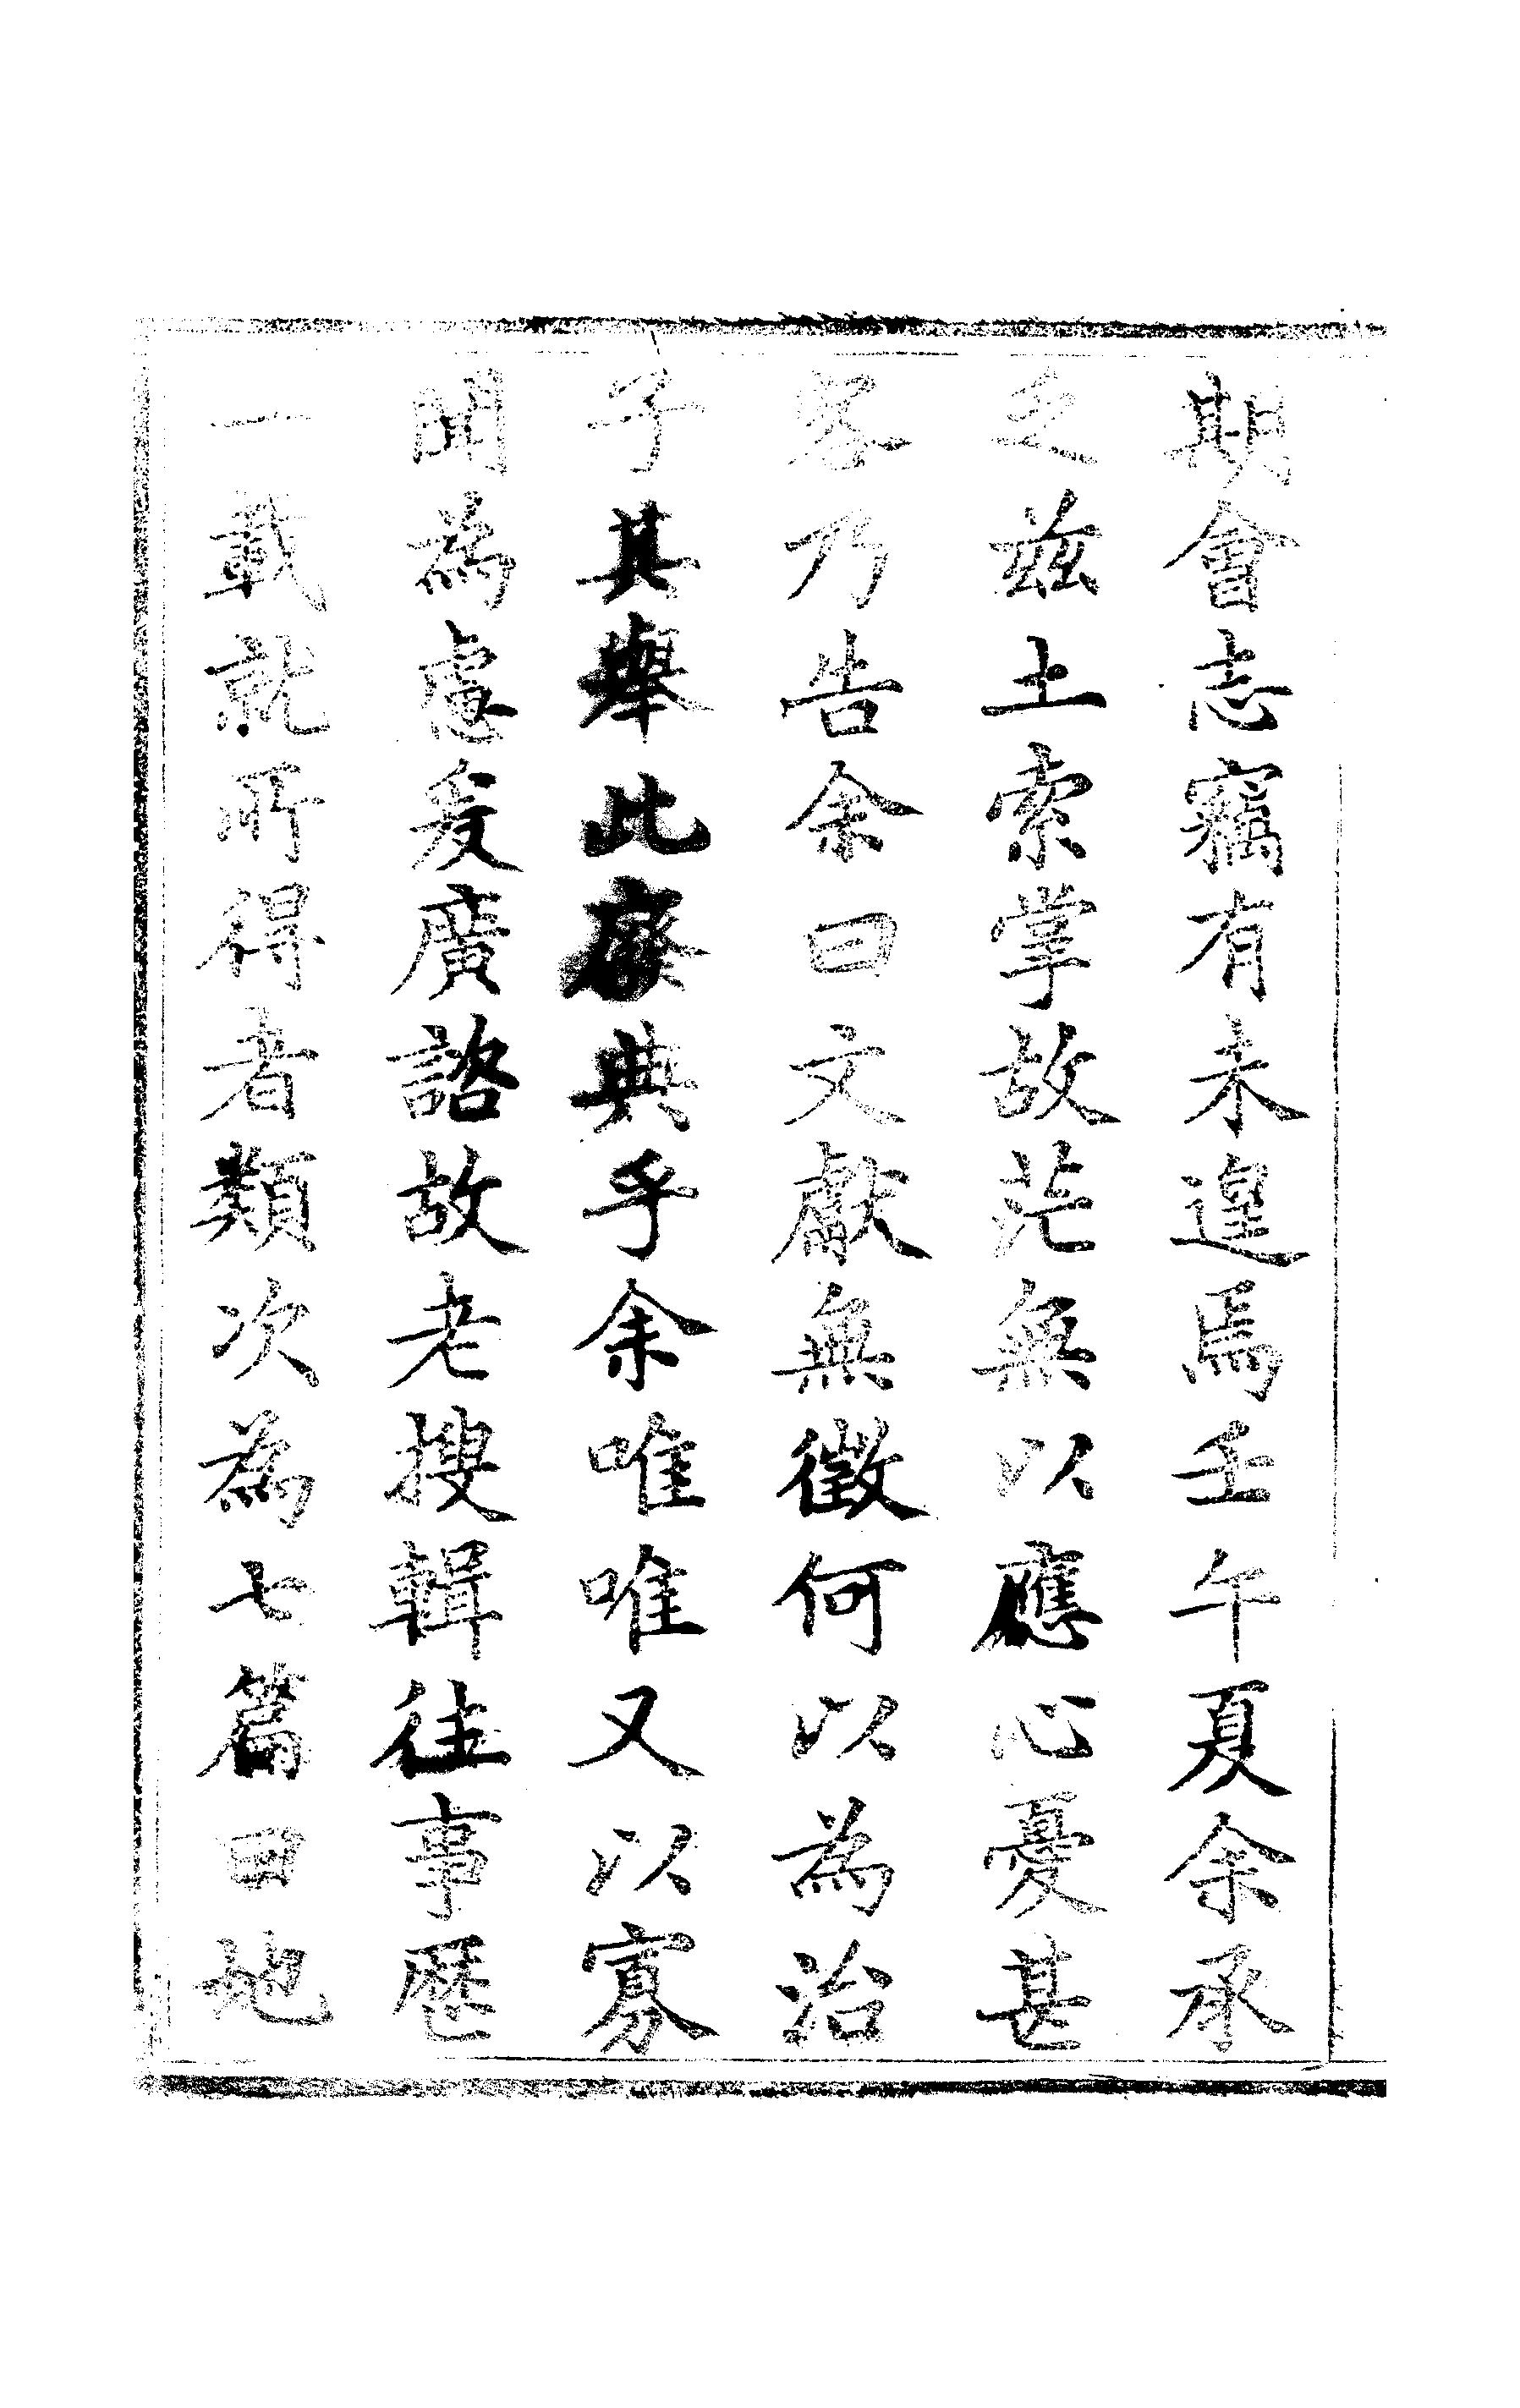 期會志竊有未遑焉壬午夏余承
乏兹土索掌故茫無以應心憂甚
客乃告余曰文獻無徵何以為治
子其舉此廢典乎余唯唯又以寡
聞為慮爰廣諮故老搜輯往事歷
一載就所得者類次為七篇曰地